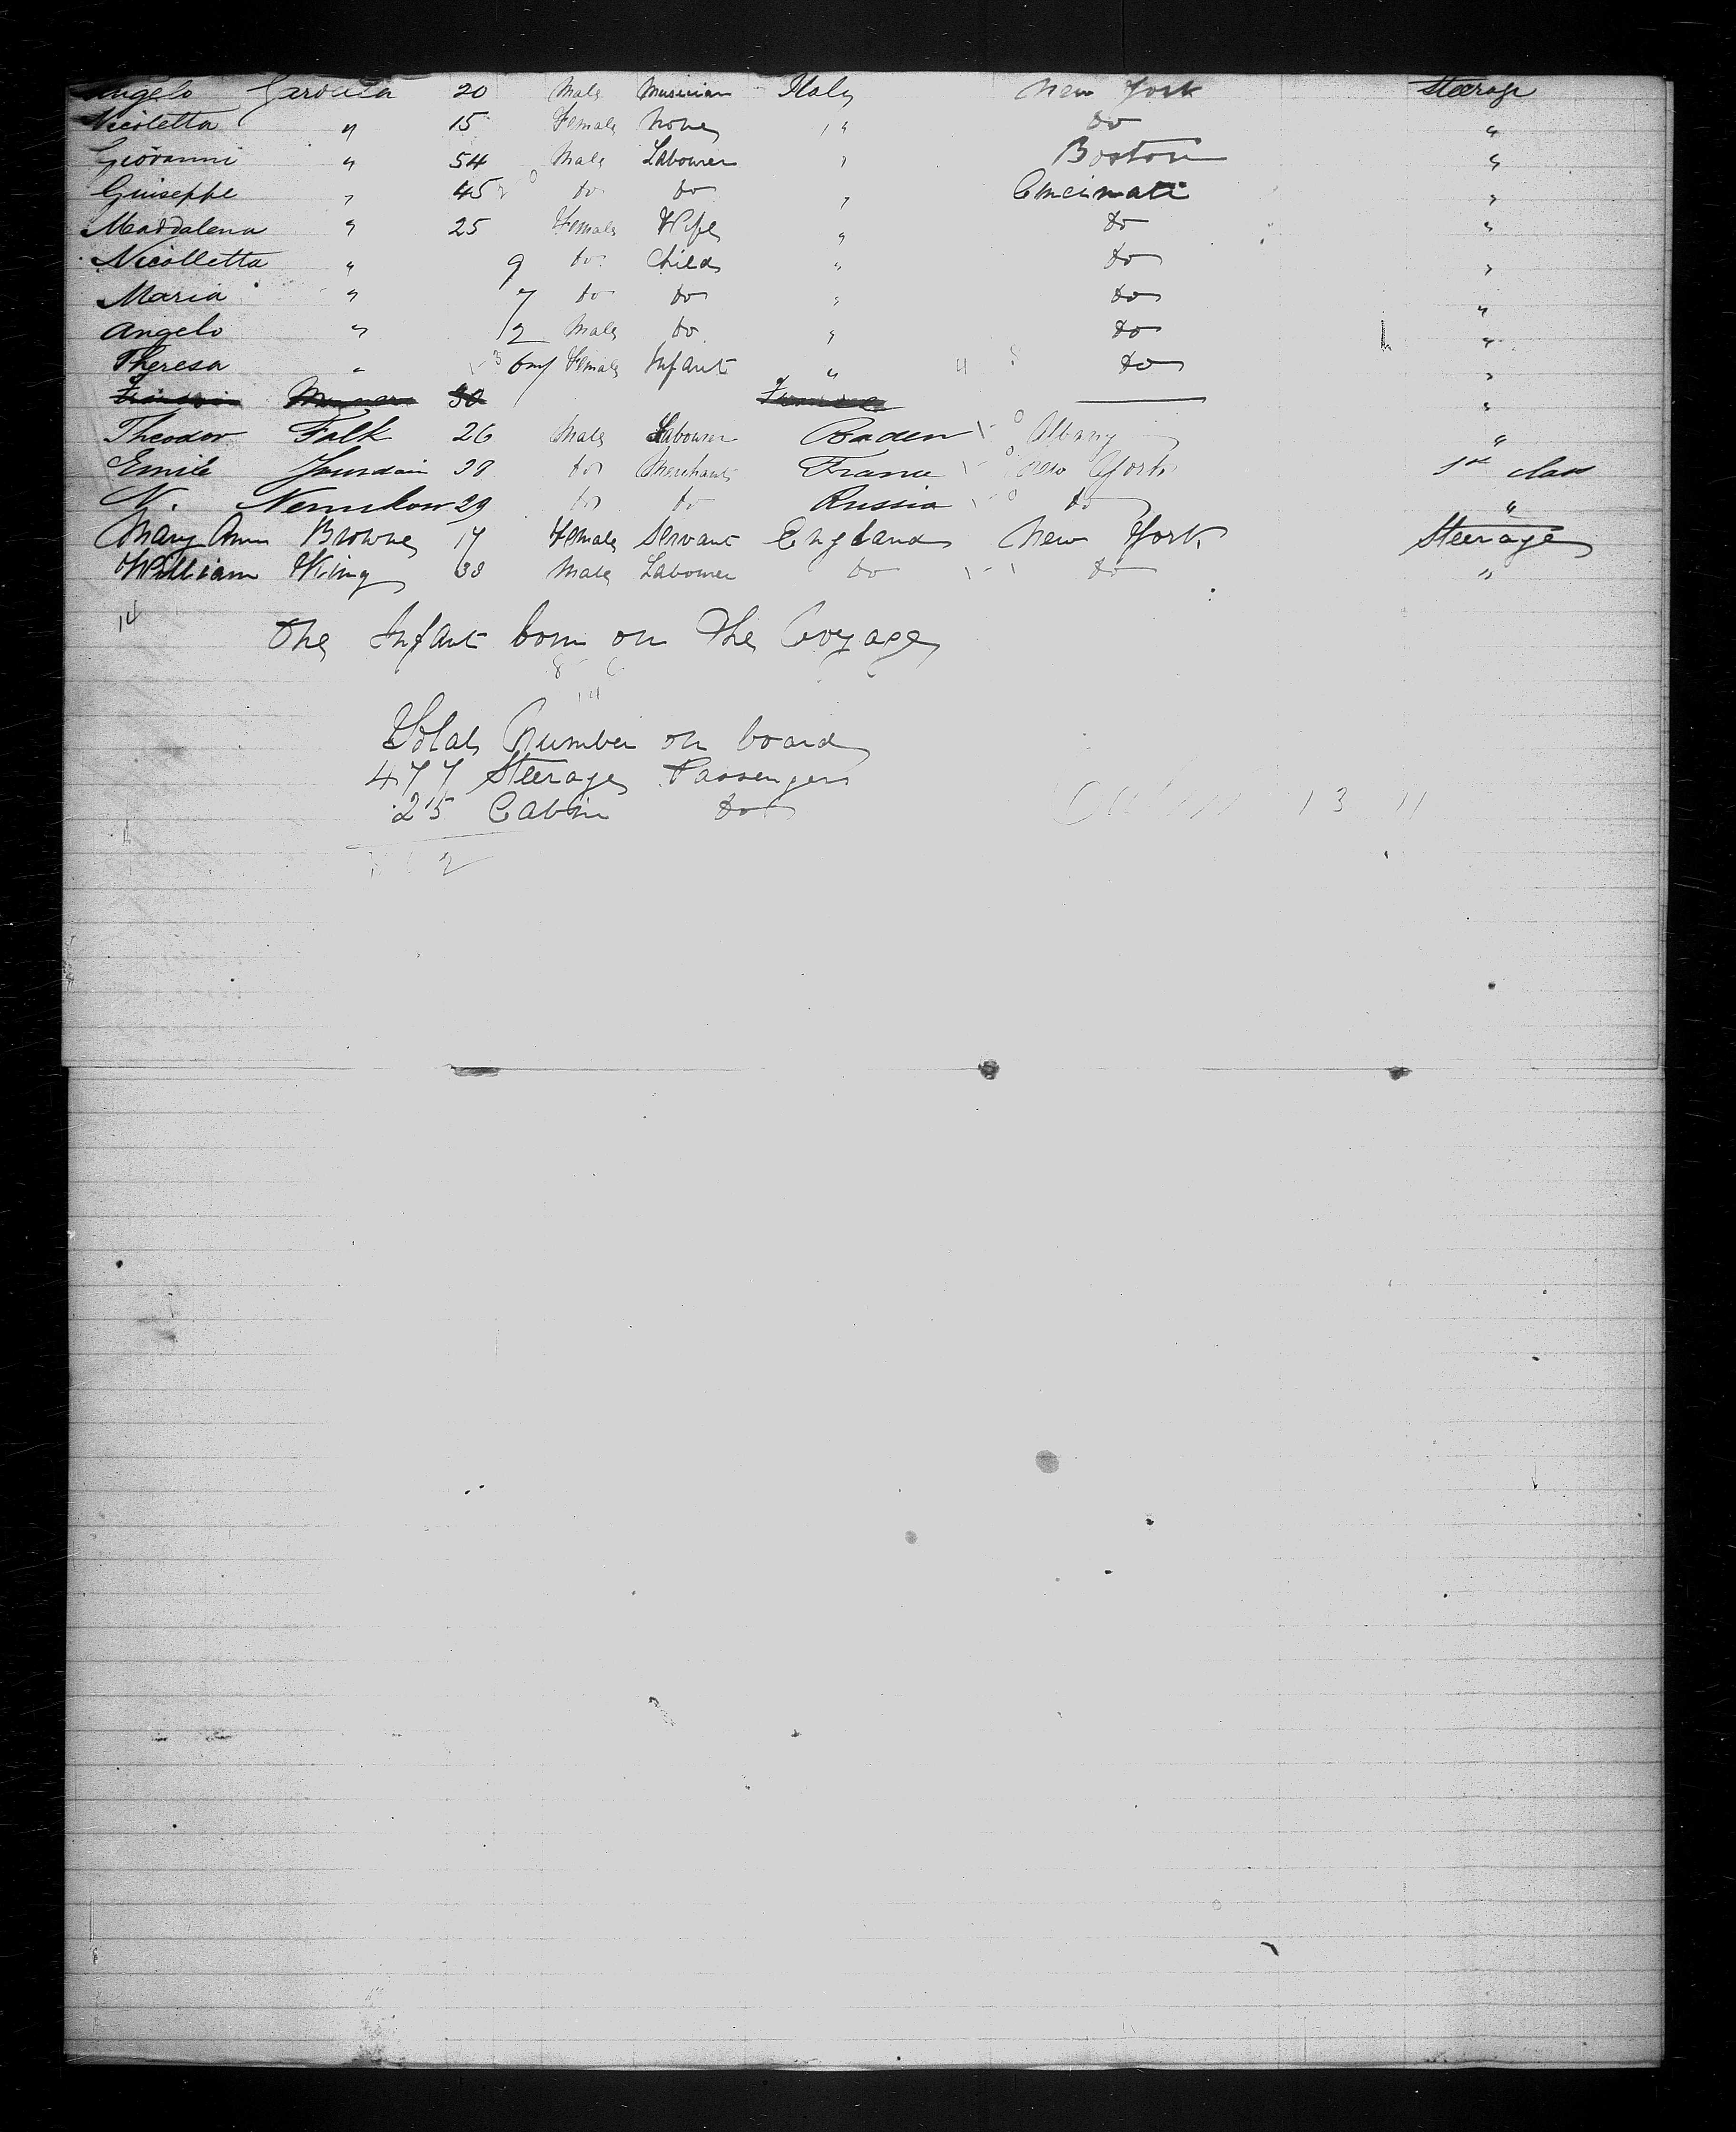 Angelo 20 Male Musician Italy New York Steerage
Nicoletta " 15 Female None " do "
Giovanni " 54 Male Labourer " Boston "
Giuseppe " 45 do do " Cincinati "
Maddalena " 25 Female Wife " do "
Nicolletta " 9 do Child " do "
Maria " 7 do do " do "
Angelo " 2 Male do " do "
Theresa " 6m Female Infant " do "
30 "
Theodor Falk 26 Male Labourer Baden Albany "
Emile Jourdain 38 do Merchant France New York 1st class
N. 29 do do Russia do "
Mary Ann Browne 17 Female Servant England New York Steerage
William King 38 Male Labourer do do "
14
One Infant born on the Voyage
14
Total Number on board
477 Steerage Passengers
25 Cabin do
Cabin 13 11